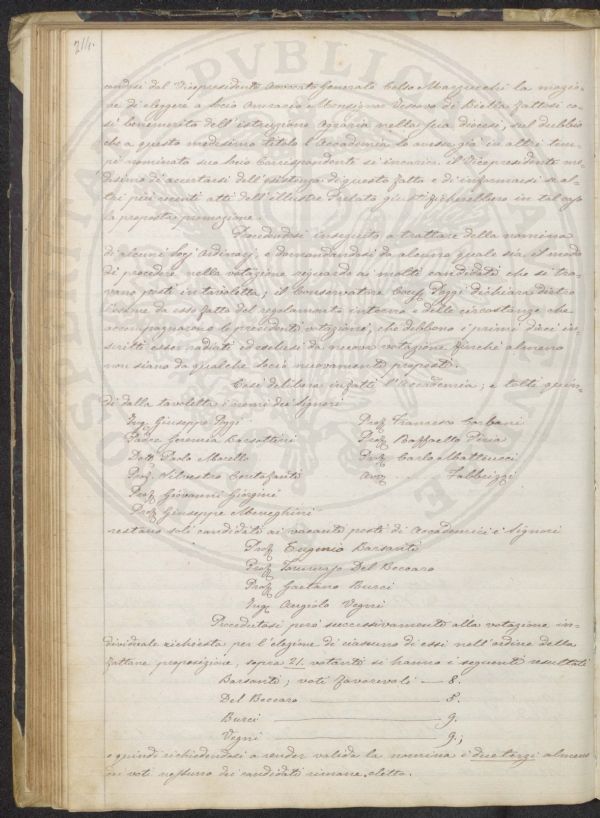 214.
dal Vicepresidente Generale Celso Marzucchi la mozio-
ne di eleggere a Socio Onorario Monsignor Vescovo di Biella fattosi co-
sì benemerito dell'istruzione Agraria nella sua diocesi, sul dubbio
che a questo medesimo titolo l'Accademia lo avesse già in altri tem-
pi nominato suo Socio Corrispondente si incarica il Vicepresidente me-
desimo di accertarsi dell'esistenza di questo fatto e di informarsi se al-
tri più recenti atti dell'illustre Prelato giustificherebbero in tal caso
la proposta promozione.
Procedendosi in seguito a trattare della nomina
di alcuni Socj Ordinarj, e domandandosi da alcuno quale sia il modo
di procedere nella votazione riguardo ai molti candidati che si tro-
vano posti in tavoletta; il Conservatore Poggi dichiara dietro
l'esame da esso fatto del regolamento interno e delle circostanze che
accompagnarono le precedenti votazioni, che debbono i primi dieci in-
scritti esser radiati ed esclusi da nuova votazione finché almeno
non siano da qualche Socio nuovamente proposti.
Così delibera infatti l'Accademia; e tolti quin-
di dalla tavoletta i nomi dei Signori
Ing. Giuseppe Poggi
Prof. Francesco Corbani
Padre Geremia Barsottini
Prof. Raffaello Piria
Dott. Paolo Morello
Prof. Carlo Matteucci
Prof. Silvestro Centofanti
Avv. . . . Fabbrizzi
Prof. Giovanni Giorgini
Prof. Giuseppe Meneghini
restano soli candidati ai vacanti posti di Accademici i Signori
Prof. Eugenio Barsanti
Prof. Tommaso Del Beccaro
Prof. Gaetano Burci
Ing. Angiolo Vegni
Procedutosi però successivamente alla votazione in-
dividuale richiesta per l'elezione di ciascuno di essi nell'ordine della
fattane proposizione, sopra 21. votanti si hanno i seguenti resultati
Barsanti; voti favorevoli — 8.
Del Beccaro — 5.
Burci — 9.
Vegni — 9.;
e quindi richiedendosi a render valida la nomina i due terzi almeno
in voti nessuno dei candidati rimane eletto.